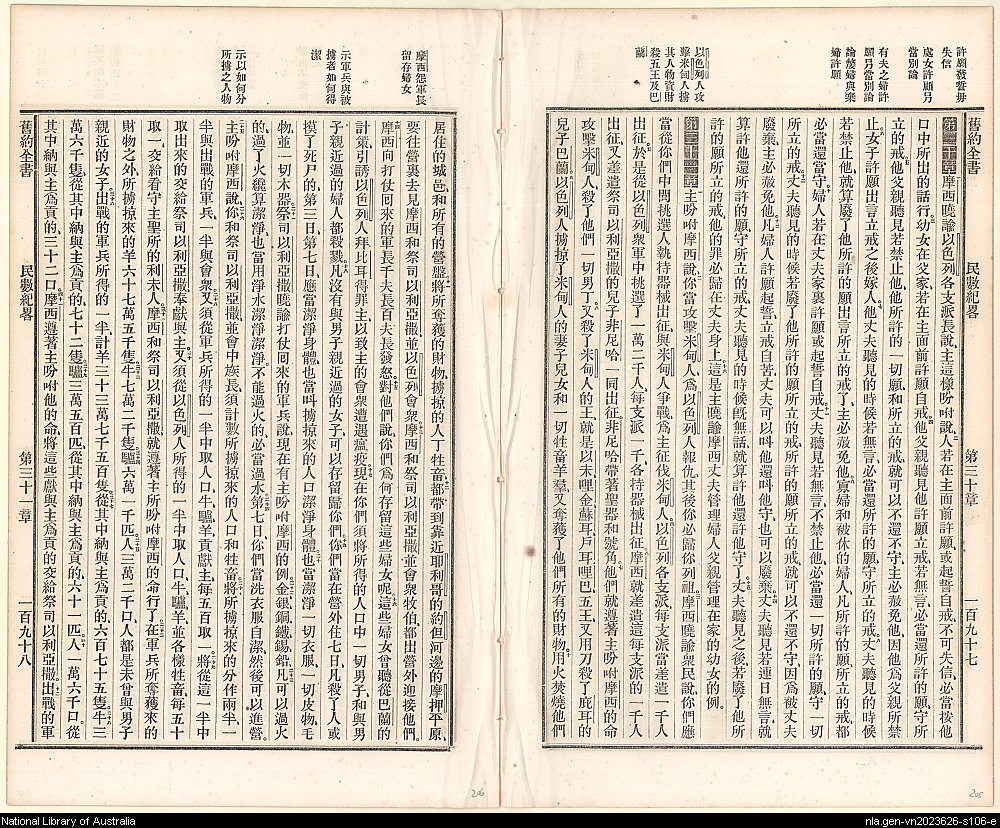 許願發誓毋
失信
處女許願另
當別論
有夫之婦許
願另當別論
論嫠婦與棄
婦許願
以色列人攻
擊米甸人擄
其人物資財
殺五王及巴
蘭
舊約全書 民數紀畧 第三十章 一百九十七
第三十章 摩西曉諭以色列各支派長說、主這樣吩咐說、人若在主面前許願或起誓自戒、不可失信、必當按他
口中所出的話行、幼女在父家、若在主面前許願自戒、他父親聽見他許願立戒若無言、必當還所許的願、守所
立的戒、他父親聽見若禁止他、他所許的一切願和所立的戒、就可以不還不守、主必赦免他、因他爲父親所禁
止、女子許願出言立戒之後嫁人、他丈夫聽見的時候若無言、必當還所許的願、守所立的戒、丈夫聽見的時候
若禁止他、就算廢了他所許的願出言所立的戒了、主必赦免他、寡婦和被休的婦人、凡所許的願所立的戒、都
必當還當守、婦人若在丈夫家裏許願或起誓自戒、丈夫聽見若無言不禁止他、必當還一切所許的願、守一切
所立的戒、丈夫聽見的時候、若廢了他所許的願所立的戒、所許的願、所立的戒、就可以不還不守、因爲被丈夫
廢棄、主必赦免他、凡婦人許願起誓、立戒自苦、丈夫可以呌他還呌他守、也可以廢棄、丈夫聽見若連日無言、就
算許他還所許的願、守所立的戒、丈夫聽見的時候旣無話、就算許他還許他守了、丈夫聽見之後、若廢了他所
許的願所立的戒、他的罪必歸在丈夫身上、這是主曉諭摩西丈夫管理婦人、父親管理在家的幼女的例。
第三十一章 主吩咐摩西說、你當攻擊米甸人、爲以色列人報仇、其後你必歸你列祖、摩西曉諭衆民說、你們應
當從你們中間挑選人、執持器械出征、與米甸人爭戰、爲主征伐米甸人、以色列各支派、每支派當差遣一千人
出征、於是從以色列衆軍中挑選了一萬二千人、每支派一千、各持器械出征、摩西就差遣這每支派的一千人
出征、又差遣祭司以利亞撒的兒子非尼哈一同出征、非尼哈帶著聖器和號角、他們就遵著主所吩咐摩西的命
攻擊米甸人、殺了他們一切男丁、又殺了米甸人的王、就是以未哩金蘇耳戶耳哩巴五王、又用刀殺了庇耳的
兒子巴蘭、以色列人擄掠了米甸人的妻子兒女和一切牲畜羊羣、又奪獲了他們所有的財物、用火焚燒他們
摩西怨軍長
留存婦女
示軍兵與被
擄者如何得
潔
示以如何分
所擄之人物
居住的城邑和所有的營盤、將所奪獲的財物、擄掠的人丁牲畜、都帶到靠近耶利哥的約但河邊的摩押平原、
要往營裏去見摩西和祭司以利亞撒並以色列會衆、摩西和祭司以利亞撒並會衆牧伯、都出營外迎接他們、
摩西向打仗囘來的軍長千夫長百夫長發怒、對他們說、你們爲何存留這些婦女呢、這些婦女曾聽從巴蘭的
計策、引誘以色列人拜比耳得罪主、以致主的會衆遭遇瘟疫、現在你們須將所得的人口中一切男子、和與男
子親近過的婦人都殺戮、凡沒有與男子親近過的女子、可以存留歸你們、你們當在營外住七日、凡殺了人或
摸了死尸的、第三日第七日、應當潔淨身體、也當呌擄掠來的人口潔淨身體、也當潔淨一切衣服、一切皮物、毛
物、並一切木器、祭司以利亞撒曉諭打仗囘來的軍兵說、現在有主吩咐摩西的例、金銀銅鐵錫鉛、凡可以過火
的、過了火纔算潔淨、也當用淨水潔淨、潔淨、不能過火的、必當過水、第七日你們當洗衣服自潔、然後可以進營、
主吩咐摩西說、你和祭司以利亞撒並會中族長、須計數所擄掠來的人口和牲畜、將所擄掠來的分作兩半、一
半與出戰的軍兵、一半與會衆、又須從軍兵所得的一半中取人口、牛、驢、羊貢獻主、每五百取一、將從這一半中
取出來的交給祭司以利亞撒奉獻與主、又須從以色列人所得的一半中取人口、牛、驢、羊並各樣牲畜、每五十
取一、交給看守主聖所的利未人、摩西和祭司以利亞撒就遵著主所吩咐摩西的命行了、在軍兵所奪獲來的
財物之外、所擄掠來的羊六十七萬五千隻、牛七萬二千隻、驢六萬一千匹、人三萬二千口、人都是未曾與男子
親近的女子、出戰的軍兵所得的一半、計羊三十三萬七千五百隻、從其中納與主爲貢的、六百七十五隻、牛三
萬六千隻、從其中納與主爲貢的、七十二隻、驢三萬五百匹、從其中納與主爲貢的、六十一匹、人一萬六千口、從
其中納與主爲貢的、三十二口、摩西遵著主吩咐他的命、將這些獻與主爲貢的、交給祭司以利亞撒、出戰的軍
舊約全書 民數紀畧 第三十一章 一百九十八
206
205
National Library of Australia
nla.gen-vn2023626-s106-e